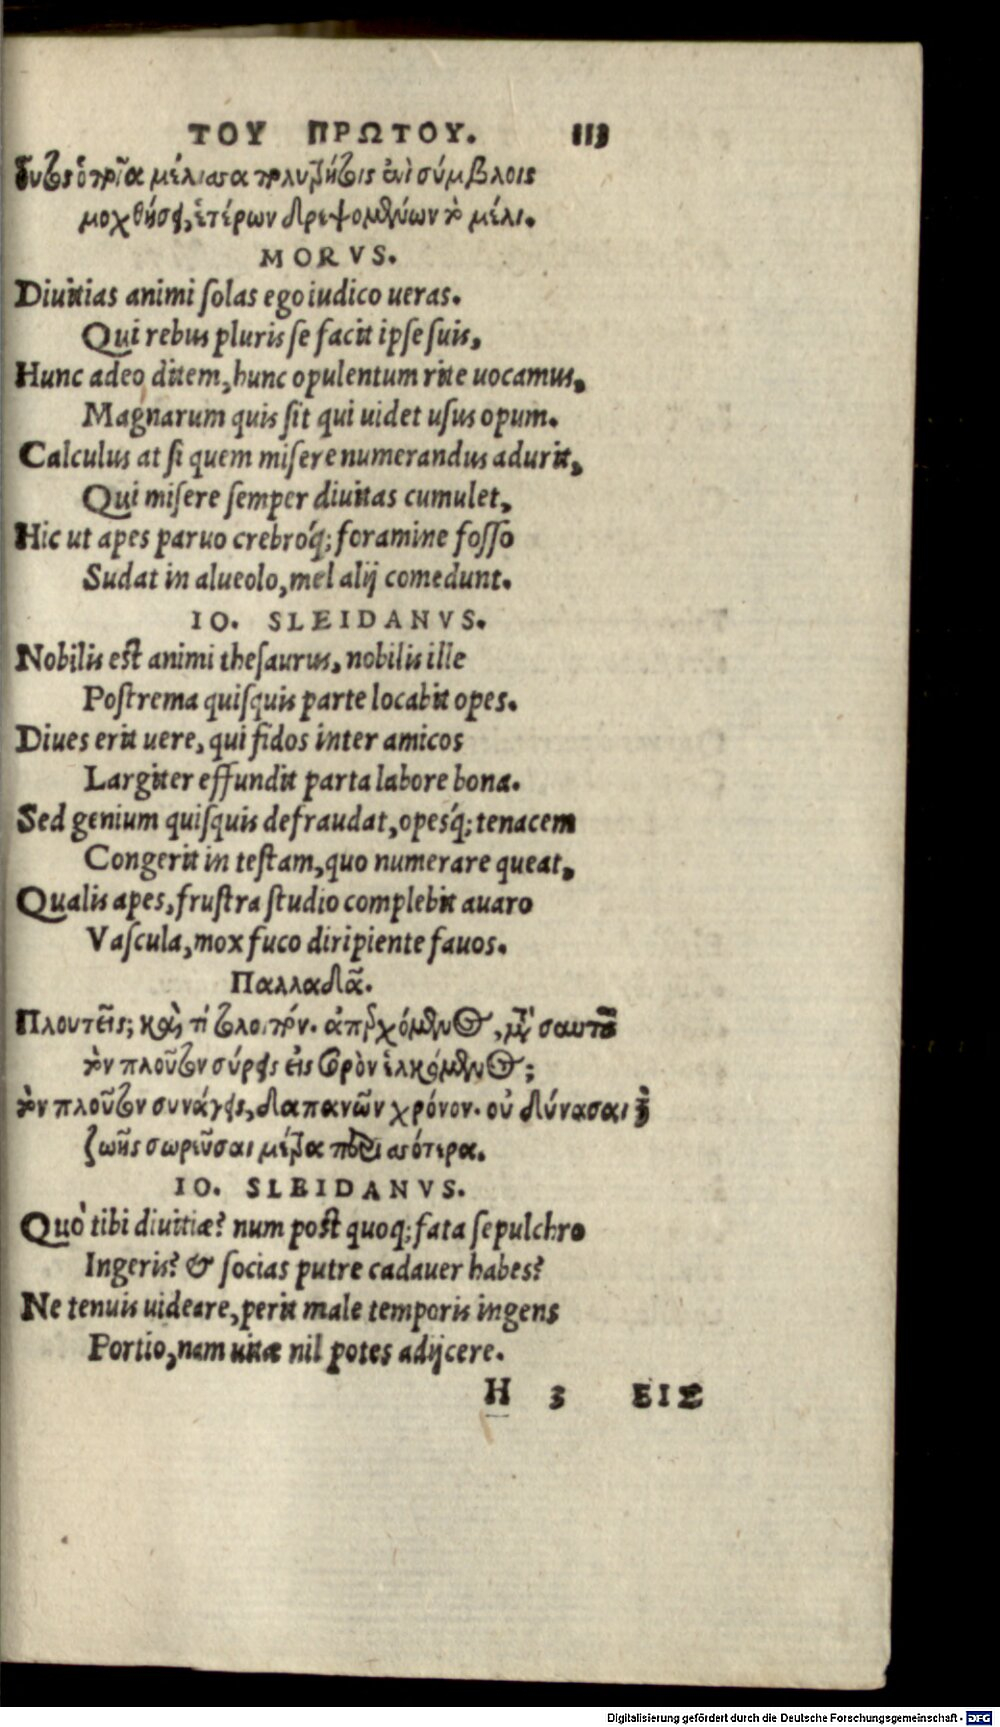 ΤΟΥ ΠΡΩΤΟΥ. 113
οὗτος ὁποῖα μέλισσα πολυτρήτοις ἐνὶ σίμβλοις
μοχθήσει, ἑτέρων δρεψομένων τὸ μέλι.
MORVS.
Diuitias animi ſolas ego iudico ueras.
Qui rebus pluris ſe facit ipſe ſuis,
Hunc adeo ditem, hunc opulentum rite uocamus,
Magnarum quis ſit qui uidet uſus opum.
Calculus at ſi quem miſere numerandus adurit,
Qui miſere ſemper diuitas cumulet,
Hic ut apes paruo crebroq́; foramine foſſo
Sudat in alueolo, mel alij comedunt.
IO. SLEIDANVS.
Nobilis eſt animi theſaurus, nobilis ille
Poſtrema quiſquis parte locabit opes.
Diues erit uere, qui fidos inter amicos
Largiter effundit parta labore bona.
Sed genium quiſquis defraudat, opesq́; tenacem
Congerit in teſtam, quo numerare queat,
Qualis apes, fruſtra ſtudio complebit auaro
Vaſcula, mox fuco diripiente fauos.
Παλλαδᾶ.
Πλουτεῖς; καὶ τί τὸ λοιπόν. ἀπερχόμενος, μετὰ σαυτοῦ
τὸν πλοῦτον σύρεις εἰς σορὸν ἑλκόμενος;
τὸν πλοῦτον συνάγεις, δαπανῶν χρόνον. οὐ δύνασαι δὲ
ζωῆς σωρεῦσαι μέτρα περισσότερα.
IO. SLEIDANVS.
Quò tibi diuitiæ? num poſt quoq; fata ſepulchro
Ingeris? & ſocias putre cadauer habes?
Ne tenuis uideare, perit male temporis ingens
Portio, nam uitæ nil potes adijcere.
H 3 ΕΙΣ
Digitalisierung gefördert durch die Deutsche Forschungsgemeinschaft - DFG